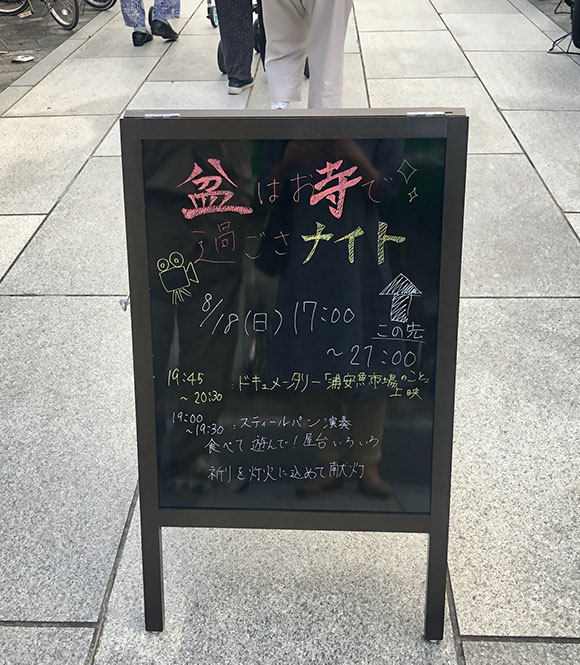 盆はお寺で
過ごさナイト
8/18(日)17:00
この先
~27:00
19:45
~20:30
:ドキュメータリー「浦安魚市場のこと」
上映
19:00
~19:30
:スティールパン演奏
食べて遊んで!屋台いろいろ
祈りを灯火に込めて献灯